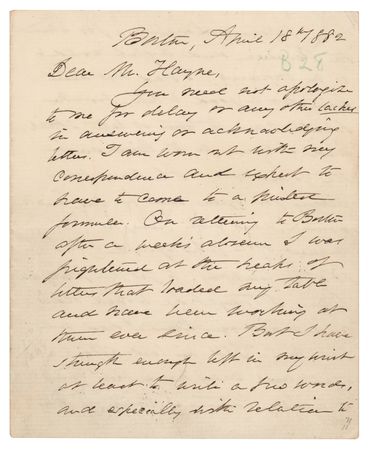 Boston, April 18th 1882
B28
Dear Mr. Hayne,
You need not apologize
to me for delay or any other laches
in answering or acknowledging
letters. I am worn out with my
correspondence and expect to
have to come to a printed
formula. On returning to Boston
after a week's absence I was
frightened at the heaps of
letters that loaded my table
and have been working at
them ever since. But I have
strength enough left in my wrist
at least to write a few words,
and especially with relation to